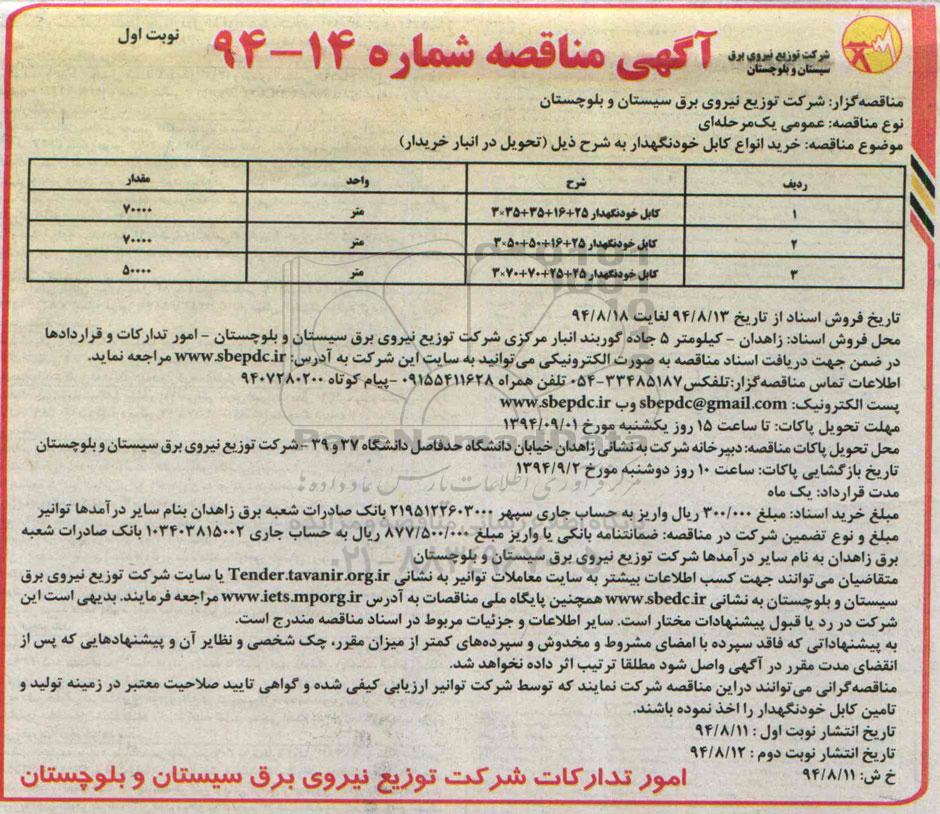 شرکت توزیع نیروی برق
سیستان و بلوچستان
آگهی مناقصه شماره ۱۴-۹۴
نوبت اول
مناقصه‌گزار: شرکت توزیع نیروی برق سیستان و بلوچستان
نوع مناقصه: عمومی یک‌مرحله‌ای
موضوع مناقصه: خرید انواع کابل خودنگهدار به شرح ذیل (تحویل در انبار خریدار)
ردیف شرح واحد مقدار
۱ کابل خودنگهدار ۲۵+۱۶+۳۵+۳۵×۳ متر ۷۰۰۰۰
۲ کابل خودنگهدار ۲۵+۱۶+۵۰+۵۰×۳ متر ۷۰۰۰۰
۳ کابل خودنگهدار ۲۵+۲۵+۷۰+۷۰×۳ متر ۵۰۰۰۰
تاریخ فروش اسناد از تاریخ ۹۴/۸/۱۳ لغایت ۹۴/۸/۱۸
محل فروش اسناد: زاهدان - کیلومتر ۵ جاده گوربند انبار مرکزی شرکت توزیع نیروی برق سیستان و بلوچستان - امور تدارکات و قراردادها
در ضمن جهت دریافت اسناد مناقصه به صورت الکترونیکی می‌توانید به سایت این شرکت به آدرس: www.sbepdc.ir مراجعه نماید.
اطلاعات تماس مناقصه‌گزار:تلفکس ۳۳۴۸۵۱۸۷-۰۵۴ تلفن همراه ۰۹۱۵۵۴۱۱۶۲۸ -پیام کوتاه ۹۴۰۷۲۸۰۲۰۰
پست الکترونیک: sbepdc@gmail.com وب www.sbepdc.ir
مهلت تحویل پاکات: تا ساعت ۱۵ روز یکشنبه مورخ ۱۳۹۴/۰۹/۰۱
محل تحویل پاکات مناقصه: دبیرخانه شرکت به نشانی زاهدان خیابان دانشگاه حدفاصل دانشگاه ۳۷ و ۳۹ - شرکت توزیع نیروی برق سیستان و بلوچستان
تاریخ بازگشایی پاکات: ساعت ۱۰ روز دوشنبه مورخ ۱۳۹۴/۹/۲
مدت قرارداد: یک ماه
مبلغ خرید اسناد: مبلغ ۳۰۰/۰۰۰ ریال واریز به حساب جاری سپهر ۲۱۹۵۱۲۲۶۰۳۰۰۰ بانک صادرات شعبه برق زاهدان بنام سایر درآمدها توانیر
مبلغ و نوع تضمین شرکت در مناقصه: ضمانتنامه بانکی یا واریز مبلغ ۸۷۷/۵۰۰/۰۰۰ ریال به حساب جاری ۱۰۳۴۰۳۸۱۵۰۰۲ بانک صادرات شعبه
برق زاهدان به نام سایر درآمدها شرکت توزیع نیروی برق سیستان و بلوچستان
متقاضیان می‌توانند جهت کسب اطلاعات بیشتر به سایت معاملات توانیر به نشانی Tender.tavanir.org.ir یا سایت شرکت توزیع نیروی برق
سیستان و بلوچستان به نشانی www.sbedc.ir همچنین پایگاه ملی مناقصات به آدرس www.iets.mporg.ir مراجعه فرمایند. بدیهی است این
شرکت در رد یا قبول پیشنهادات مختار است. سایر اطلاعات و جزئیات مربوط در اسناد مناقصه مندرج است.
به پیشنهاداتی که فاقد سپرده با امضای مشروط و مخدوش و سپرده‌های کمتر از میزان مقرر، چک شخصی و نظایر آن و پیشنهادهایی که پس از
انقضای مدت مقرر در آگهی واصل شود مطلقا ترتیب اثر داده نخواهد شد.
مناقصه‌گرانی می‌توانند دراین مناقصه شرکت نمایند که توسط شرکت توانیر ارزیابی کیفی شده و گواهی تایید صلاحیت معتبر در زمینه تولید و
تامین کابل خودنگهدار را اخذ نموده باشند.
تاریخ انتشار نوبت اول : ۹۴/۸/۱۱
تاریخ انتشار نوبت دوم : ۹۴/۸/۱۲
خ ش: ۹۴/۸/۱۱
امور تدارکات شرکت توزیع نیروی برق سیستان و بلوچستان